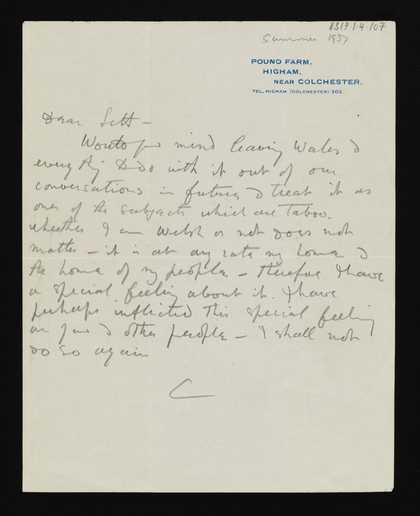 8317.1.4.107
Summer 1937
POUND FARM,
HIGHAM,
NEAR COLCHESTER.
TEL. HIGHAM (COLCHESTER) 302.
Dear Lett –
Would you mind leaving Wales &
everything to do with it out of our
conversations in future & treat it as
one of the subjects which are Taboo.
whether I am welsh or not does not
matter – it is at any rate my home &
the home of my people – therefore I have
a special feeling about it. I have
perhaps inflicted this special feeling
on you & other people – I shall not
do so again
C